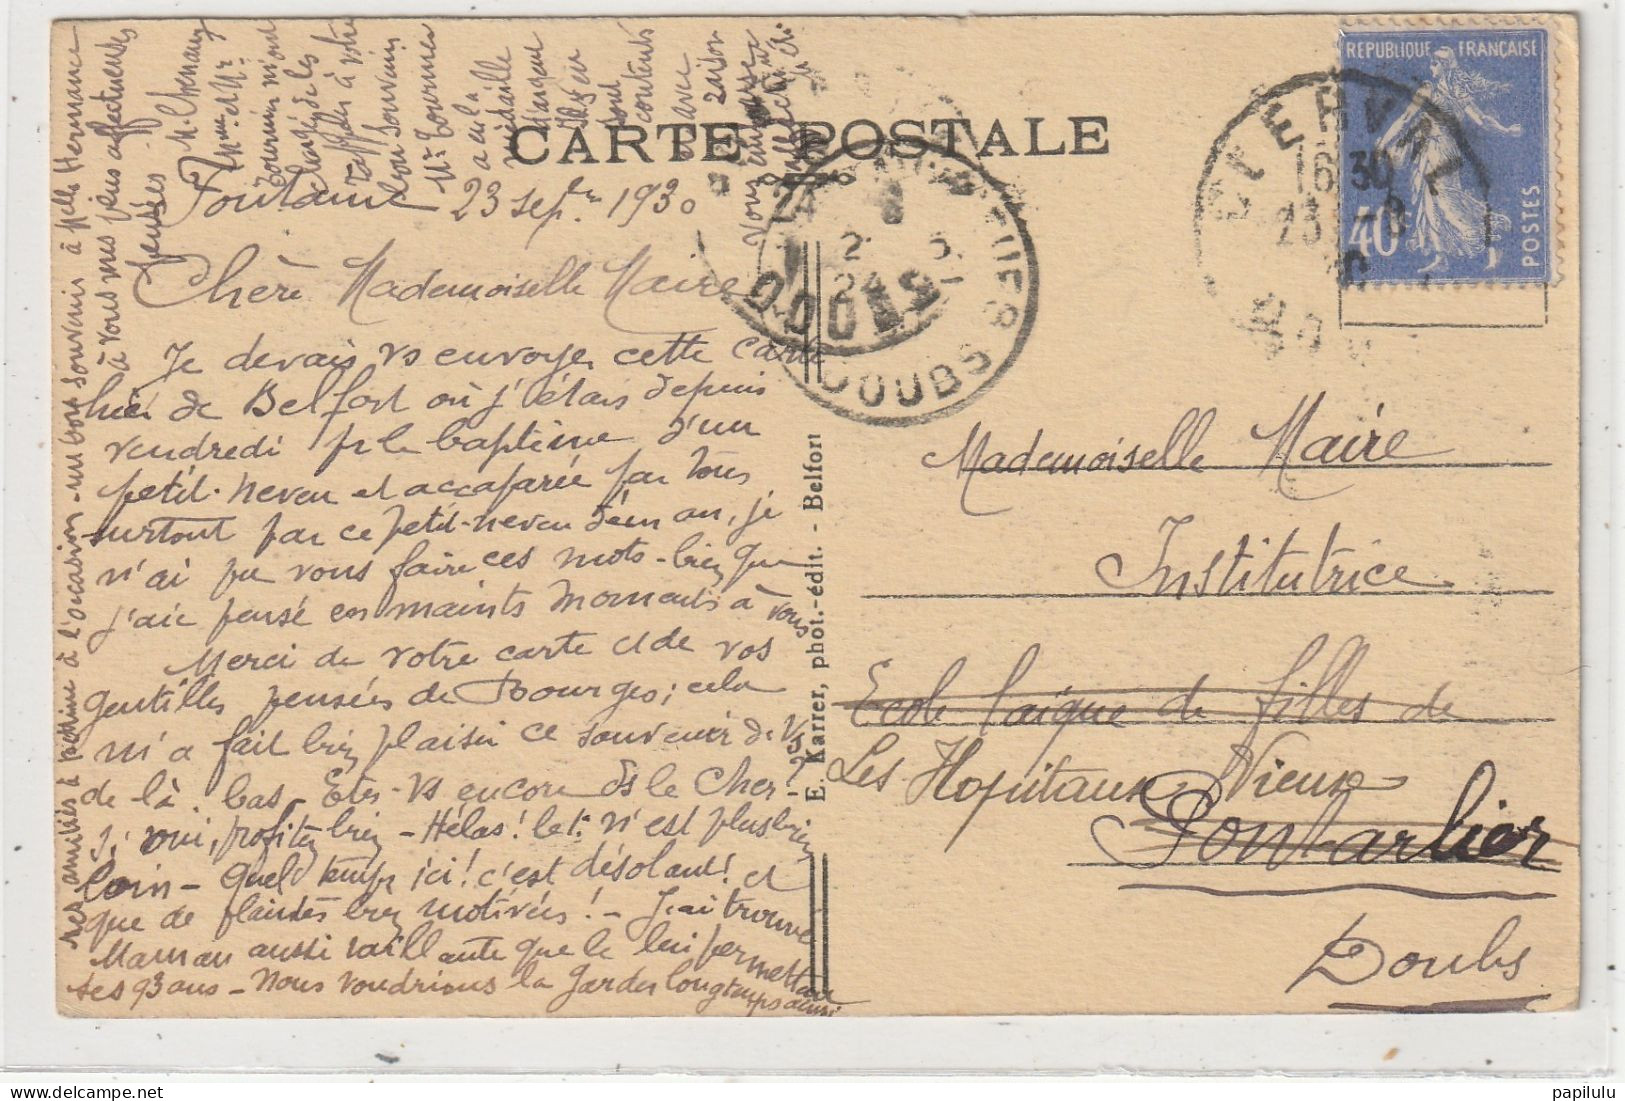 CARTE POSTALE
REPUBLIQUE FRANÇAISE
40
POSTES
16 30
DOUBS
DOUBS
E. Karrer, phot.-édit. - Belfort
Fontaine 23 sept. 1930
Chère Mademoiselle Maire
Je devais vs envoyer cette carte
hier de Belfort où j'étais depuis
vendredi pr le baptême d'un
petit-neveu et accaparée par tous
surtout par ce petit-neveu d'un an, je
n'ai pu vous faire ces mots - bien que
j'aie pensé en maints moments à vous
Merci de votre carte et de vos
gentilles pensées de Bourges ; cela
m'a fait bien plaisir ce souvenir de vs
de là-bas - Etes-vs encore ds le Cher ?
si oui, profitez bien - Hélas ! le n'est plus bien
loin - Quel temps ici ! c'est désolant ! et
que de plaintes bien motivées ! - J'ai trouvé
Maman aussi vaillante que le lui permettent
ses 93 ans - Nous voudrions la garder longtemps ainsi
mes amitiés à à l'occasion - un bon souvenir à Melle Hermance
à vous mes plus affectueuses
pensées
Mme et Mr
Tournier m'ont
chargée de les
rappeler à votre
bon souvenir
Mr Tournier
a eu la
médaille
d'argent
Ils en
sont
contents
et avec
raison
Vous embrasse
Mademoiselle Maire
Institutrice
Ecole laïque de filles de
Les Hopitaux Vieux
Pontarlier
Doubs
papilulu